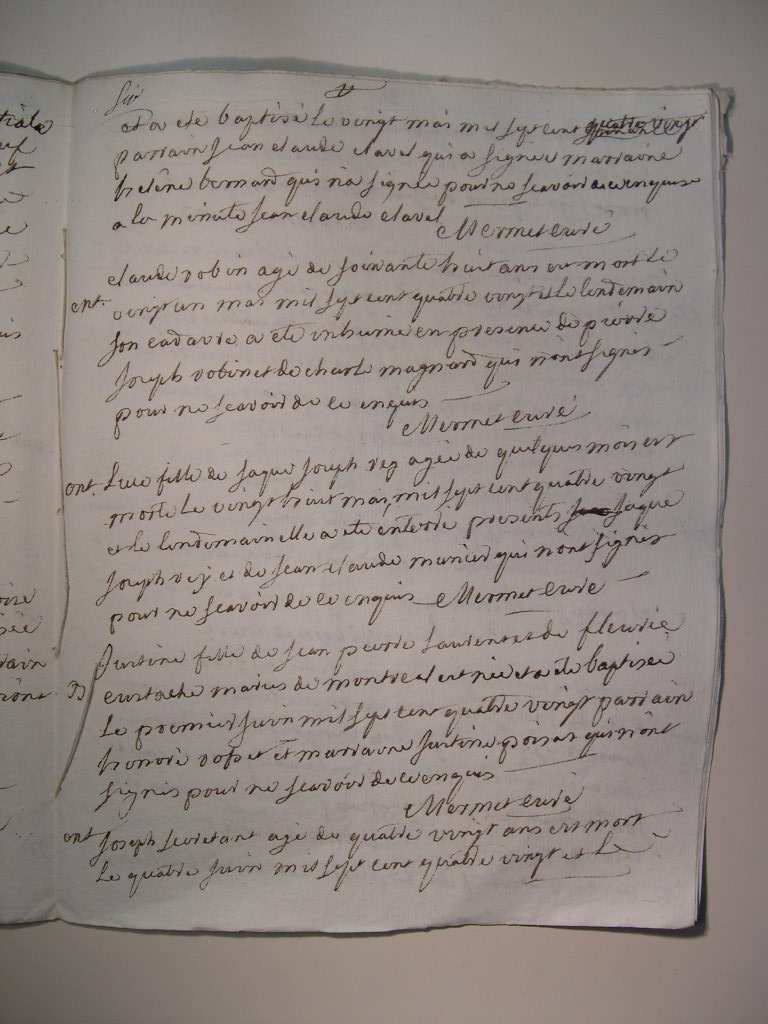 et a été baptisé le vingt mai mil sept cent quatre vingt
parrain Jean claude clavel qui a signé et marraine
heléne bernard qui n'a signée pour ne scavoir de ce enquise
a la minute Jean claude clavel Mermet curé
claude robin agé de soixante huit ans est mort le
ent. vingt un mai mil sept cent quatre vingt et le lendemain
son cadavre a été inhumé en presence de pierre
Joseph robin et de charle magnard qui n'ont signés
pour ne scavoir de ce enquis
Mermet curé
ent. Luce fille de Jaque Joseph rey agée de quelques mois est
morte le vingt huit mai, mil sept cent quatre vingt
et le lendemain elle a été enterrée presents Jaque
Joseph rey et de Jean claude munier qui n'ont signés
pour ne scavoir de ce enquis Mermet curé
Justine fille de Jean pierre laurent et de fleurie
B eustache mariés de montreal est née et a été baptisée
Le premier Juin mil sept cent quatre vingt parrain
honoré rosset et marraine Justine poisat qui n'ont
signés pour ne scavoir de ce enquis
Mermet curé
ent Joseph secretant agé de quatre vingt ans est mort
Le quatre Juin mil sept cent quatre vingt et Le